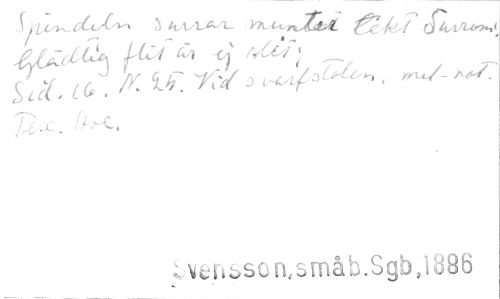 Spindeln surrar munter
Glädtig flit är ej slit;
Sid. 16. N. 25. Vid svarfstolen. mel-not.
Svensson,småb.Sgb,1886